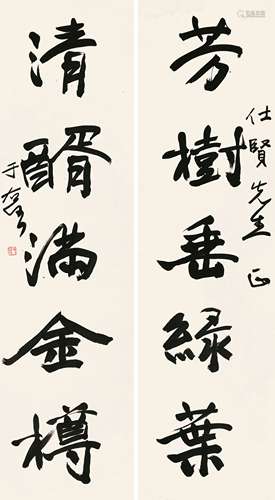 芳樹垂綠葉
仕賢先生正
清醑滿金樽
于右任